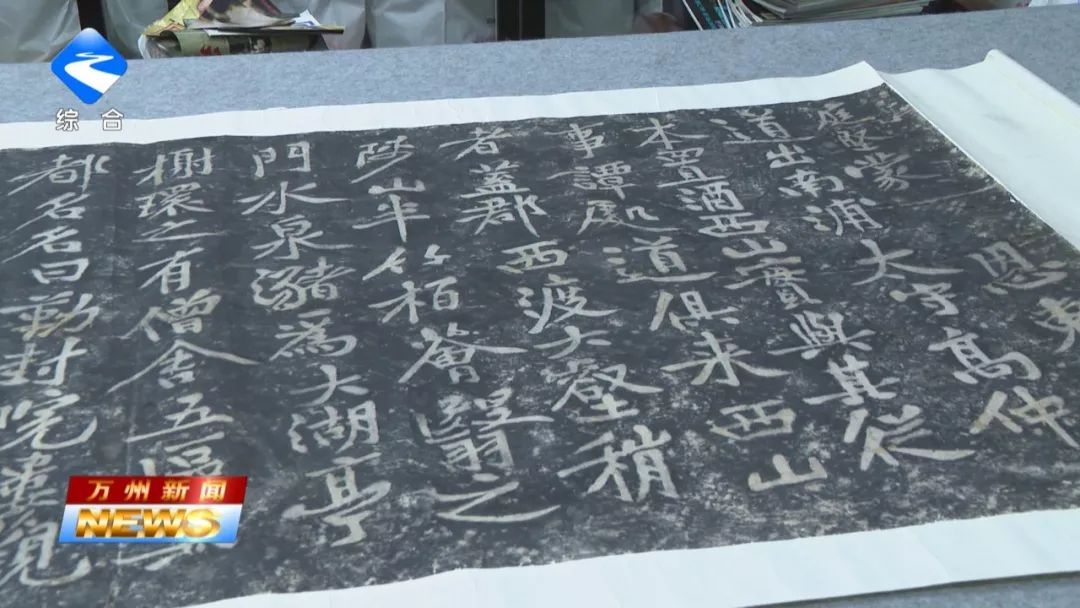 综合
庭堅蒙恩東
道出南浦大守高仲
本置酒西山實與其從
事譚處道俱來西山
者蓋郡西渡大壑稍
陟山半竹柏薈翳之
門水泉瀦爲大湖亭
榭環之有僧舍五區其
都名名曰勒封院
万州新闻
NEWS